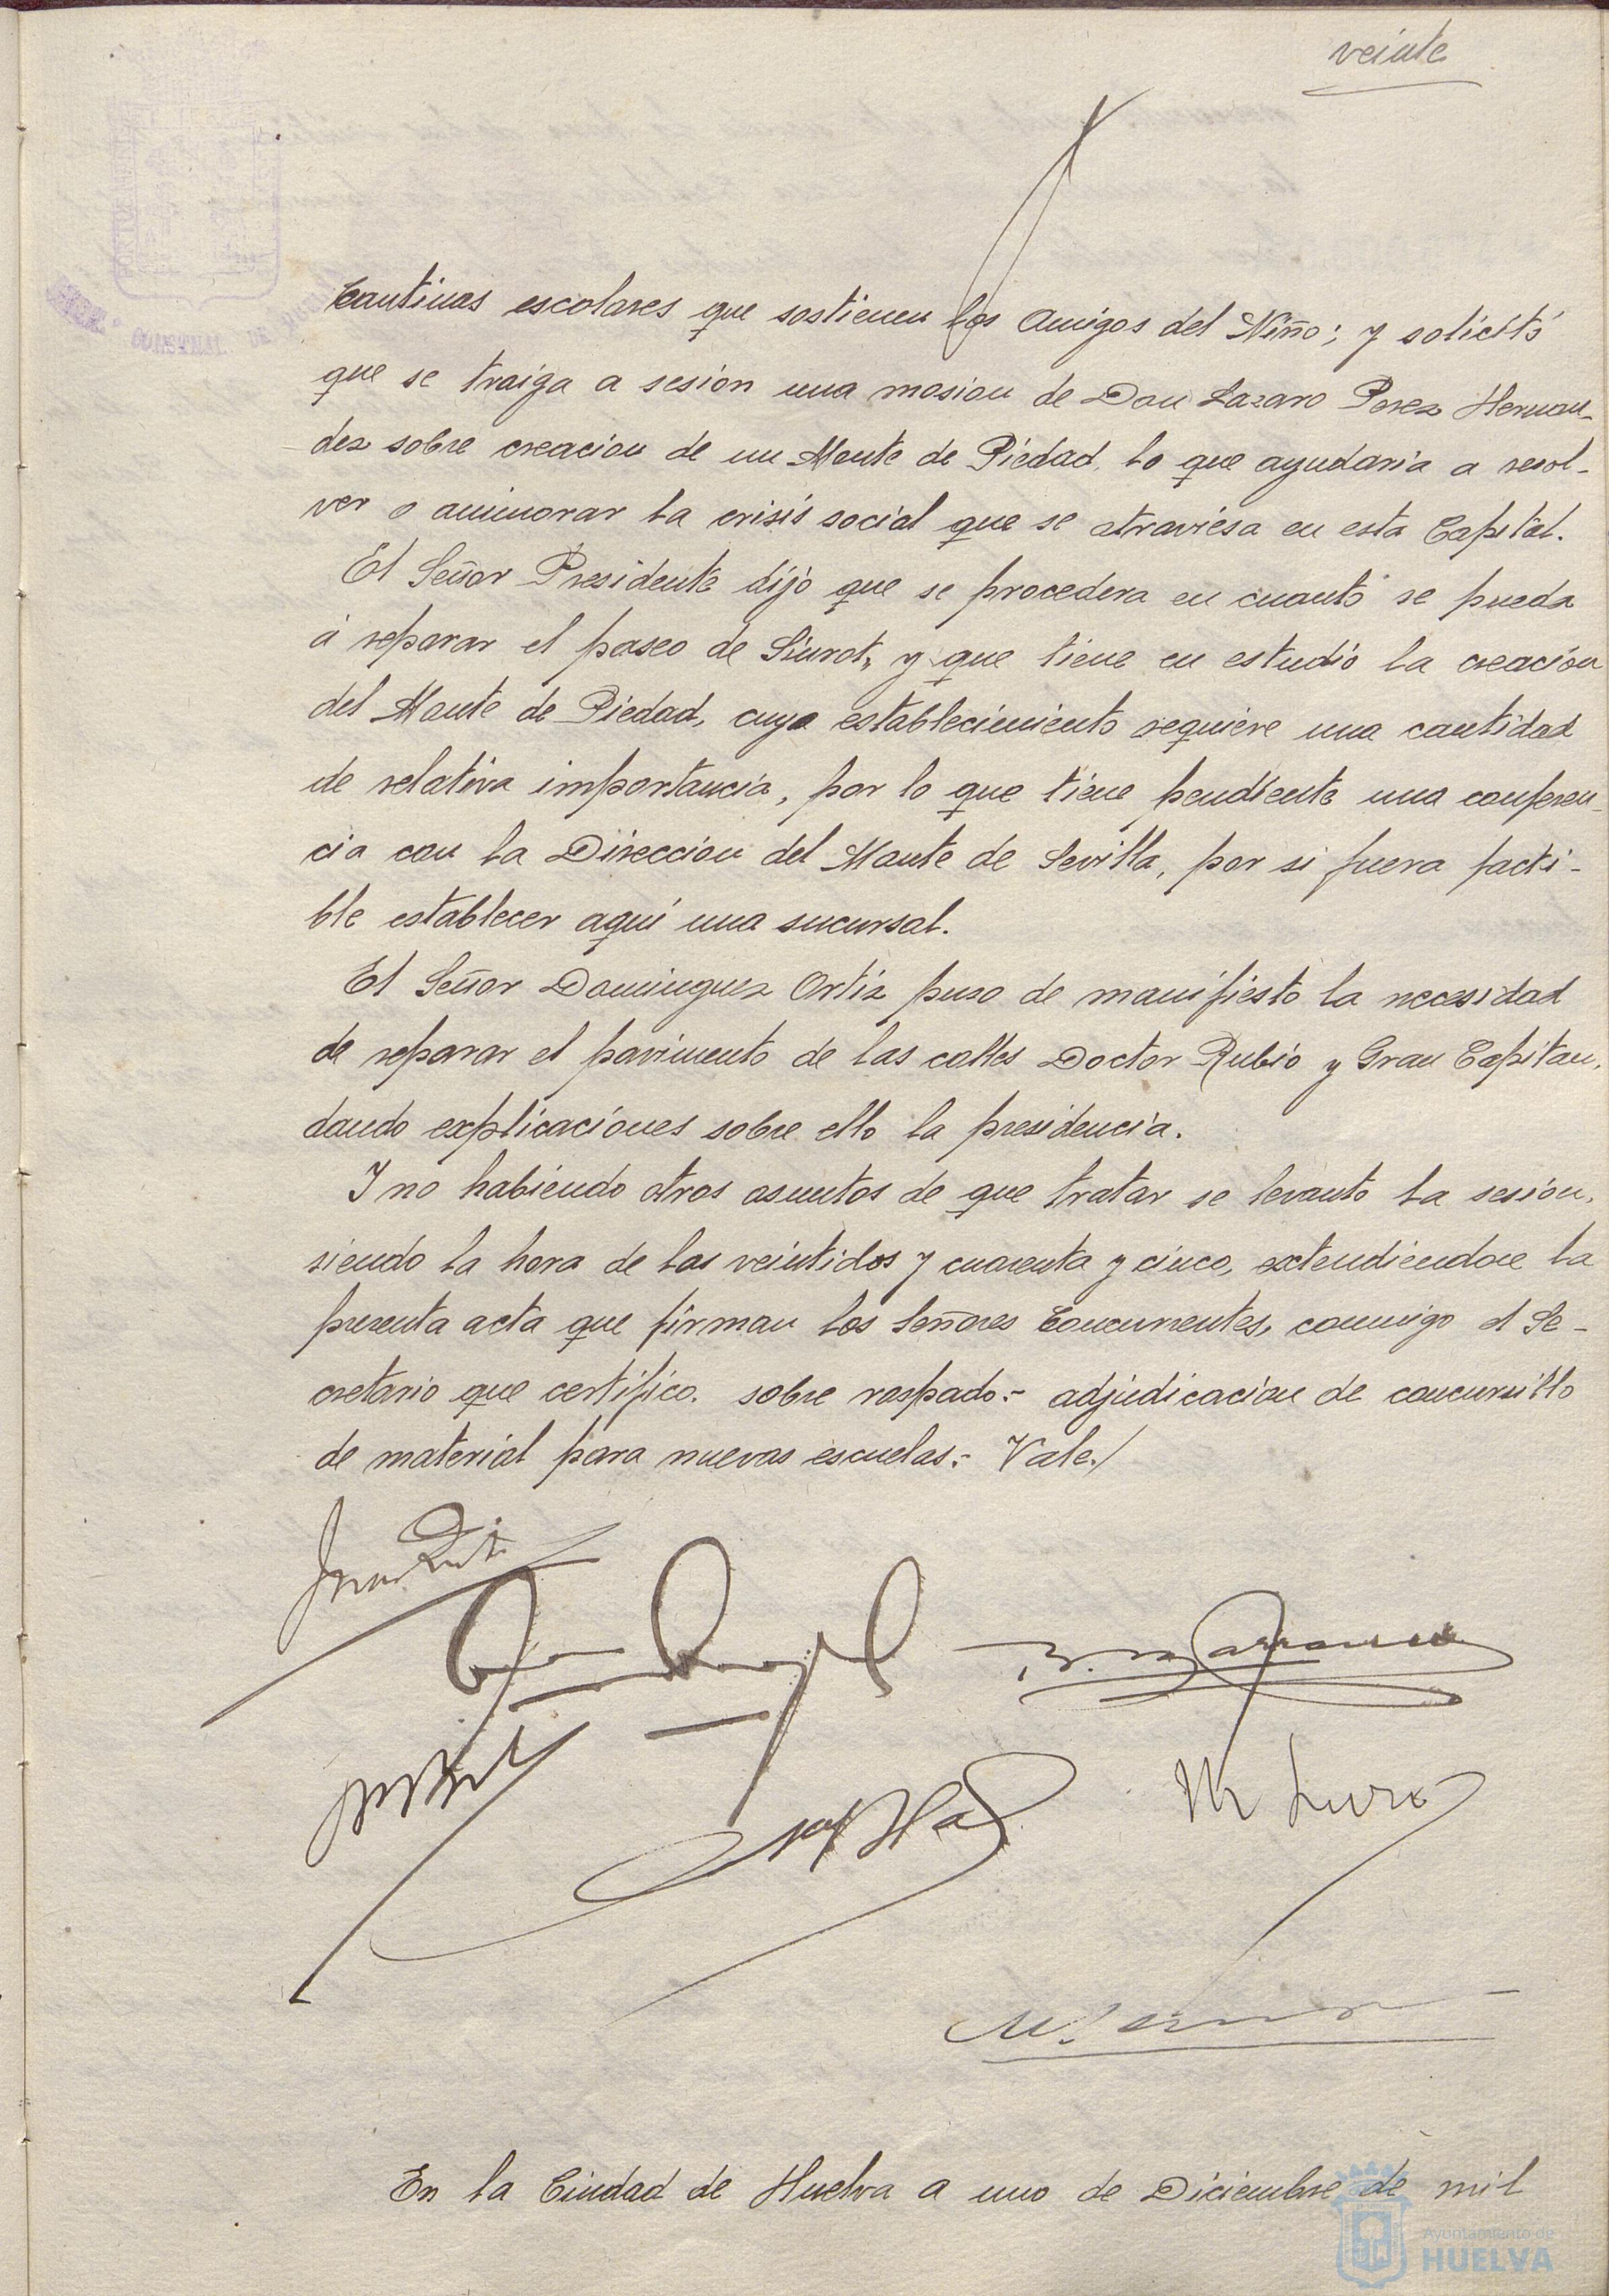 veinte
Cantinas escolares que sostienen los Amigos del Niño; y solicitó
que se traiga a sesion una mosion de Don Lazaro Perez Hernan-
dez sobre creacion de un Monte de Piedad, lo que ayudaria a resol-
ver o aminorar la crisis social que se atraviesa en esta Capital.
El Señor Presidente dijo que se procedera en cuanto se pueda
á reparar el paseo de Siurot, y que tiene en estudio la creación
del Monte de Piedad, cuyo establecimiento requiere una cantidad
de relativa importancia, por lo que tiene pendiente una conferen-
cia con la Direccion del Monte de Sevilla, por si fuera facti-
ble establecer aquí una sucursal.
El Señor Dominguez Ortiz puso de manifiesto la necesidad
de reparar el pavimento de las calles Doctor Rubio y Gran Capitan,
dando explicaciones sobre ello la presidencia.
Y no habiendo otros asuntos de que tratar se levanto la sesión,
siendo la hora de las veintidos y cuarenta y cinco, extendiendose la
presente acta que firman los Señores Concurrentes, conmigo el Se-
cretario que certifico. sobre raspado:- adjudicacion de concursillo
de material para nuevas escuelas:- Vale./
En la Ciudad de Huelva a uno de Diciembre de mil
Ayuntamiento de
HUELVA